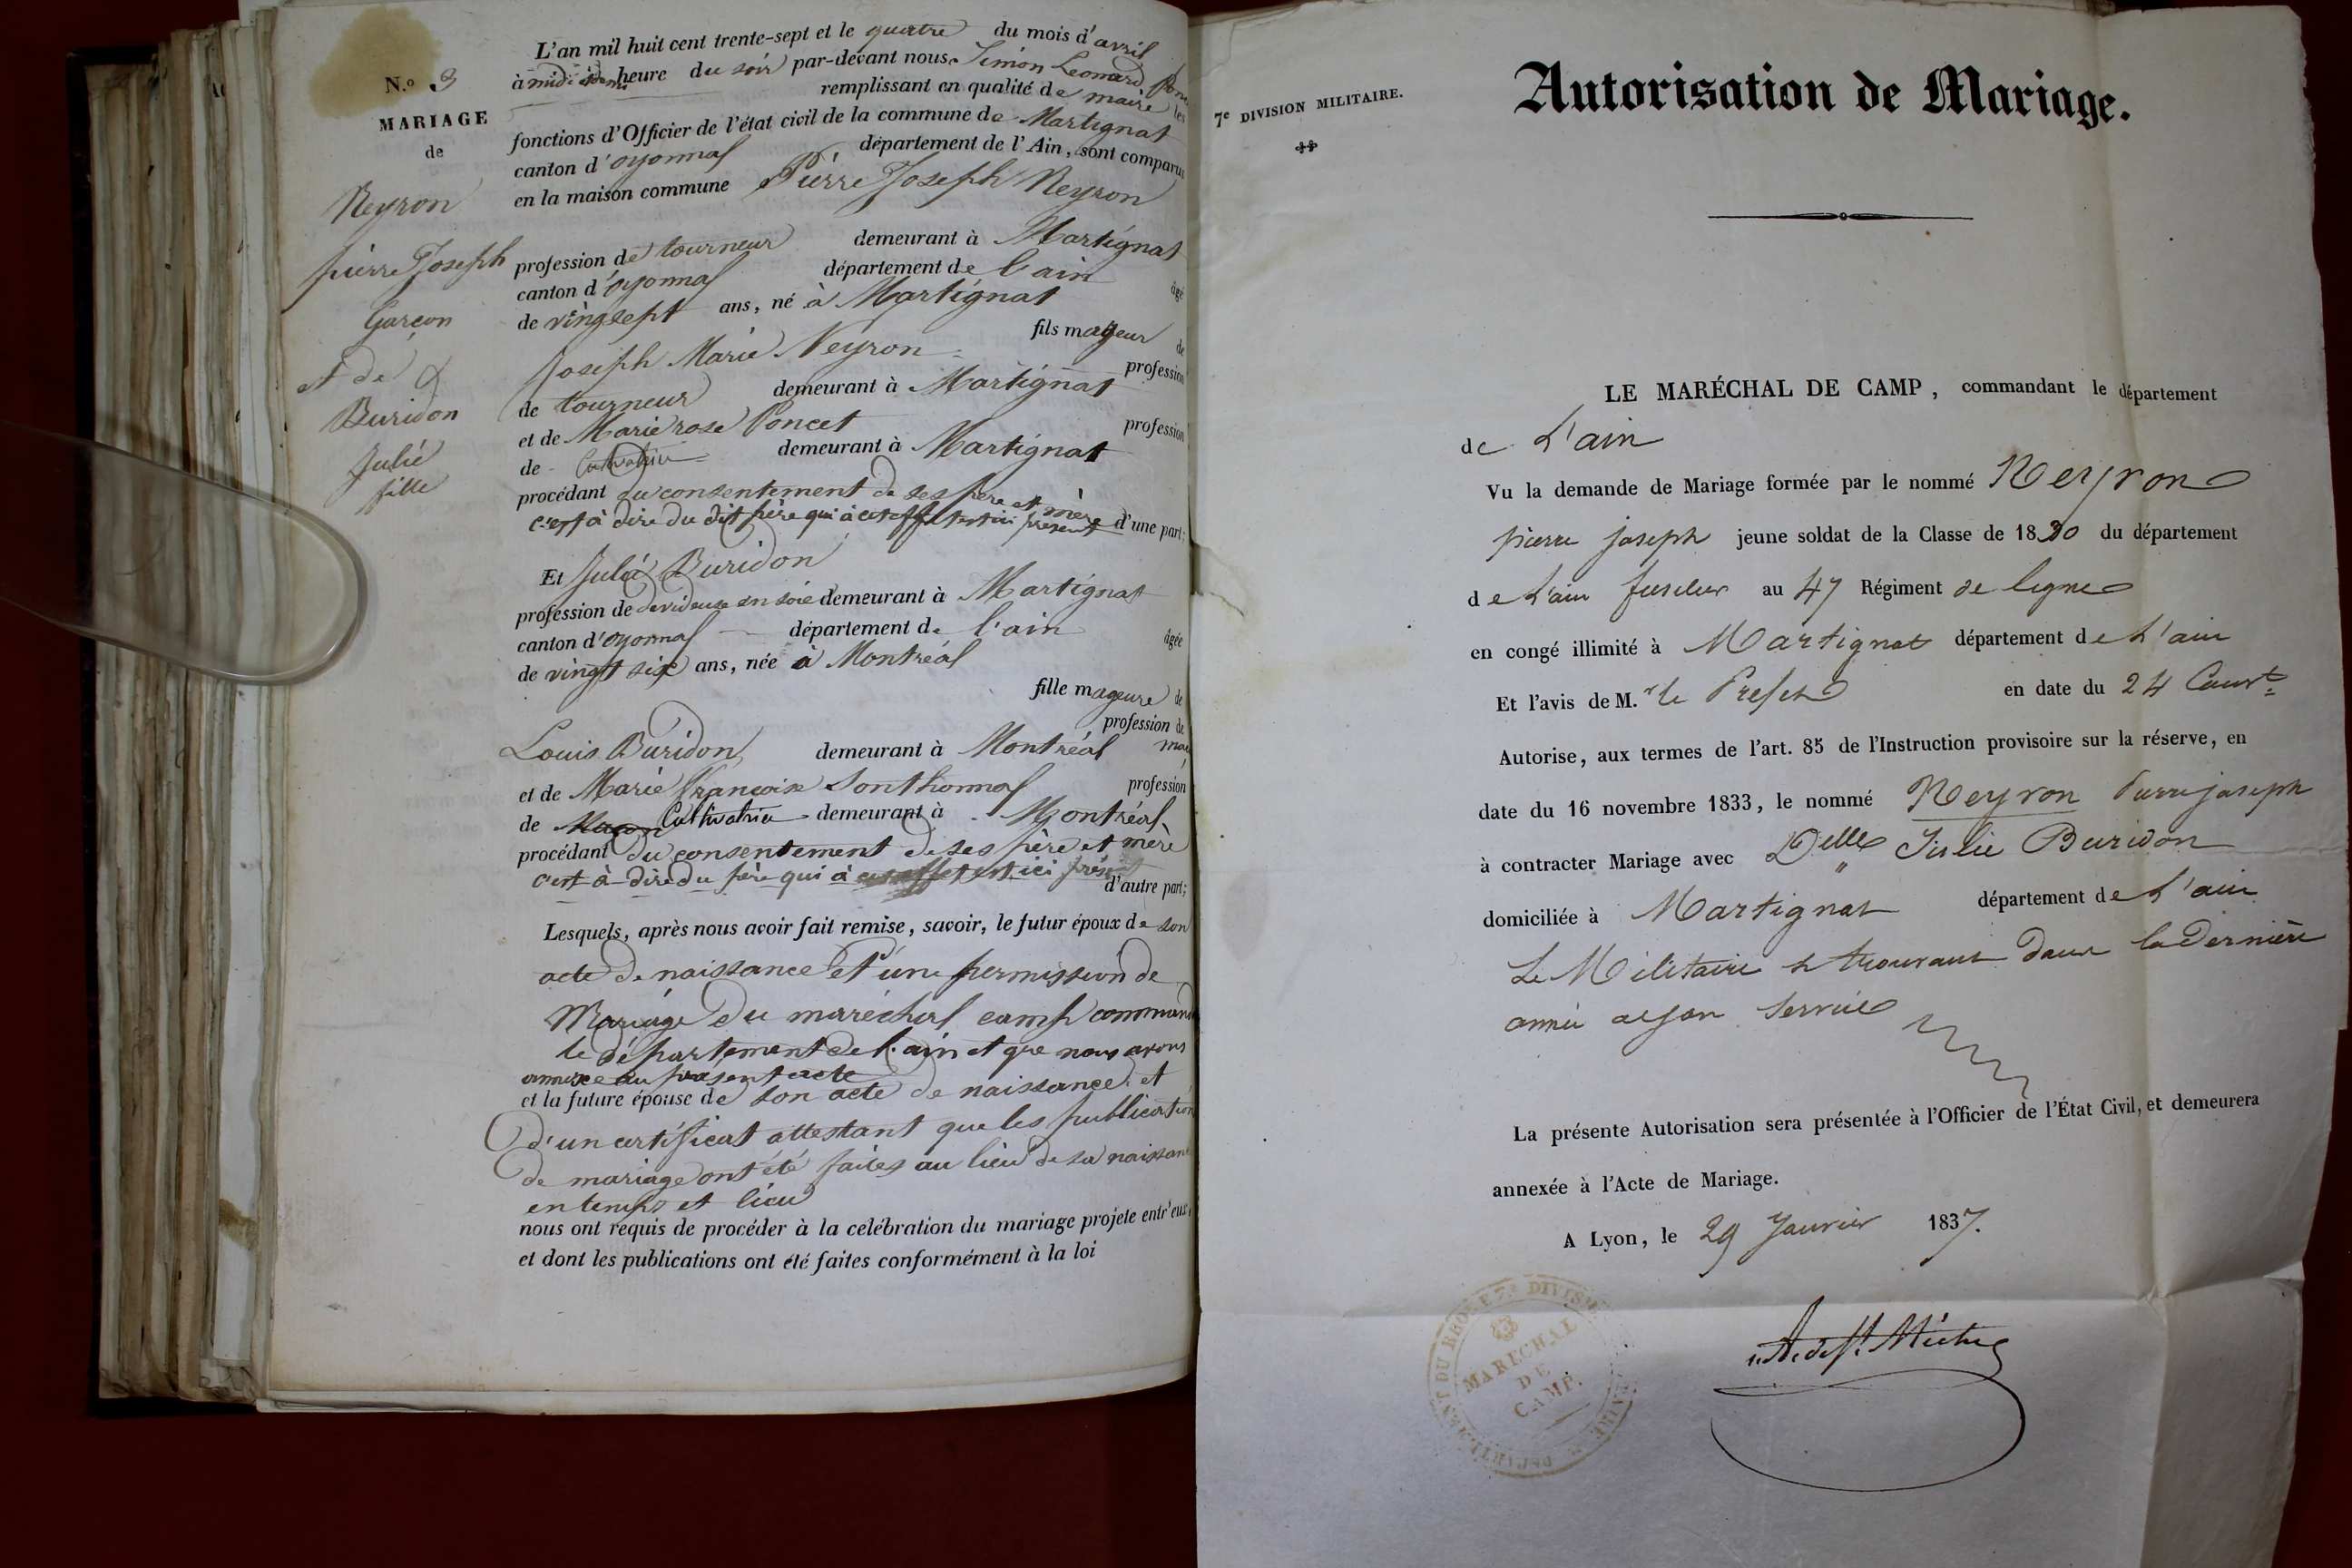 N.º 3
MARIAGE
de
Neyron
pierre Joseph
Garçon
et de
Buridon
Julié
fille
L'an mil huit cent trente-sept et le quatre du mois d'avril
à midi heure du soir par-devant nous Simon Leonard
remplissant en qualité de maire les
fonctions d'Officier de l'état civil de la commune de Martignat
canton d'oyonnas département de l'Ain, sont comparus
en la maison commune Pierre Joseph Neyron
profession de tourneur demeurant à Martignat
canton d'oyonnas département de l'ain âgé
de vingsept ans, né à Martignat
fils mageur de
Joseph Marie Neyron profession
de tourneur demeurant à Martignat
et de Marie rose Poncet profession
de Cultivatrice demeurant à Martignat
procédant du consentement de ses père et mère
c'est à dire du dit père qui à cet effet est ici présent d'une part;
Et Julié Buridon
profession de devideuse en soie demeurant à Martignat
canton d'oyonnas département de l'ain âgée
de vingt six ans, née à Montréal
fille mageure de
profession de
Louis Buridon demeurant à Montréal
et de Marie Françoise Sonthonnas profession
de Maçon Cultivatrice demeurant à Montréal
procédant du consentement de ses père et mère
c'est à dire du père qui à cet effet est ici présent
d'autre part;
Lesquels, après nous avoir fait remise, savoir, le futur époux de son
acte de naissance et d'une permission de
Mariage du maréchal camp command
le département de l'ain et que nous avons
annexé au présent acte
et la future épouse de son acte de naissance et
d'un certificat attestant que les publication
de mariage ont été faites au lieu de sa naissan
en temps et lieu
nous ont requis de procéder à la celébration du mariage projeté entr'eux
et dont les publications ont été faites conformément à la loi
7e DIVISION MILITAIRE.
Autorisation de Mariage.
LE MARÉCHAL DE CAMP, commandant le département
de L'ain
Vu la demande de Mariage formée par le nommé Neyron
pierre joseph jeune soldat de la Classe de 1830 du département
de L'ain fusilier au 47 Régiment de ligne
en congé illimité à Martignat département de L'ain
Et l'avis de M.r le Prefet en date du 24 Court
Autorise, aux termes de l'art. 85 de l'Instruction provisoire sur la réserve, en
date du 16 novembre 1833, le nommé Neyron Pierre joseph
à contracter Mariage avec Delle Julie Buridon
domiciliée à Martignat département de L'ain
Le Militaire se trouvant dans la dernière
année de son Service
La présente Autorisation sera présentée à l'Officier de l'État Civil, et demeurera
annexée à l'Acte de Mariage.
A Lyon, le 29 Janvier 1837.
MARECHAL
DE
CAMP.